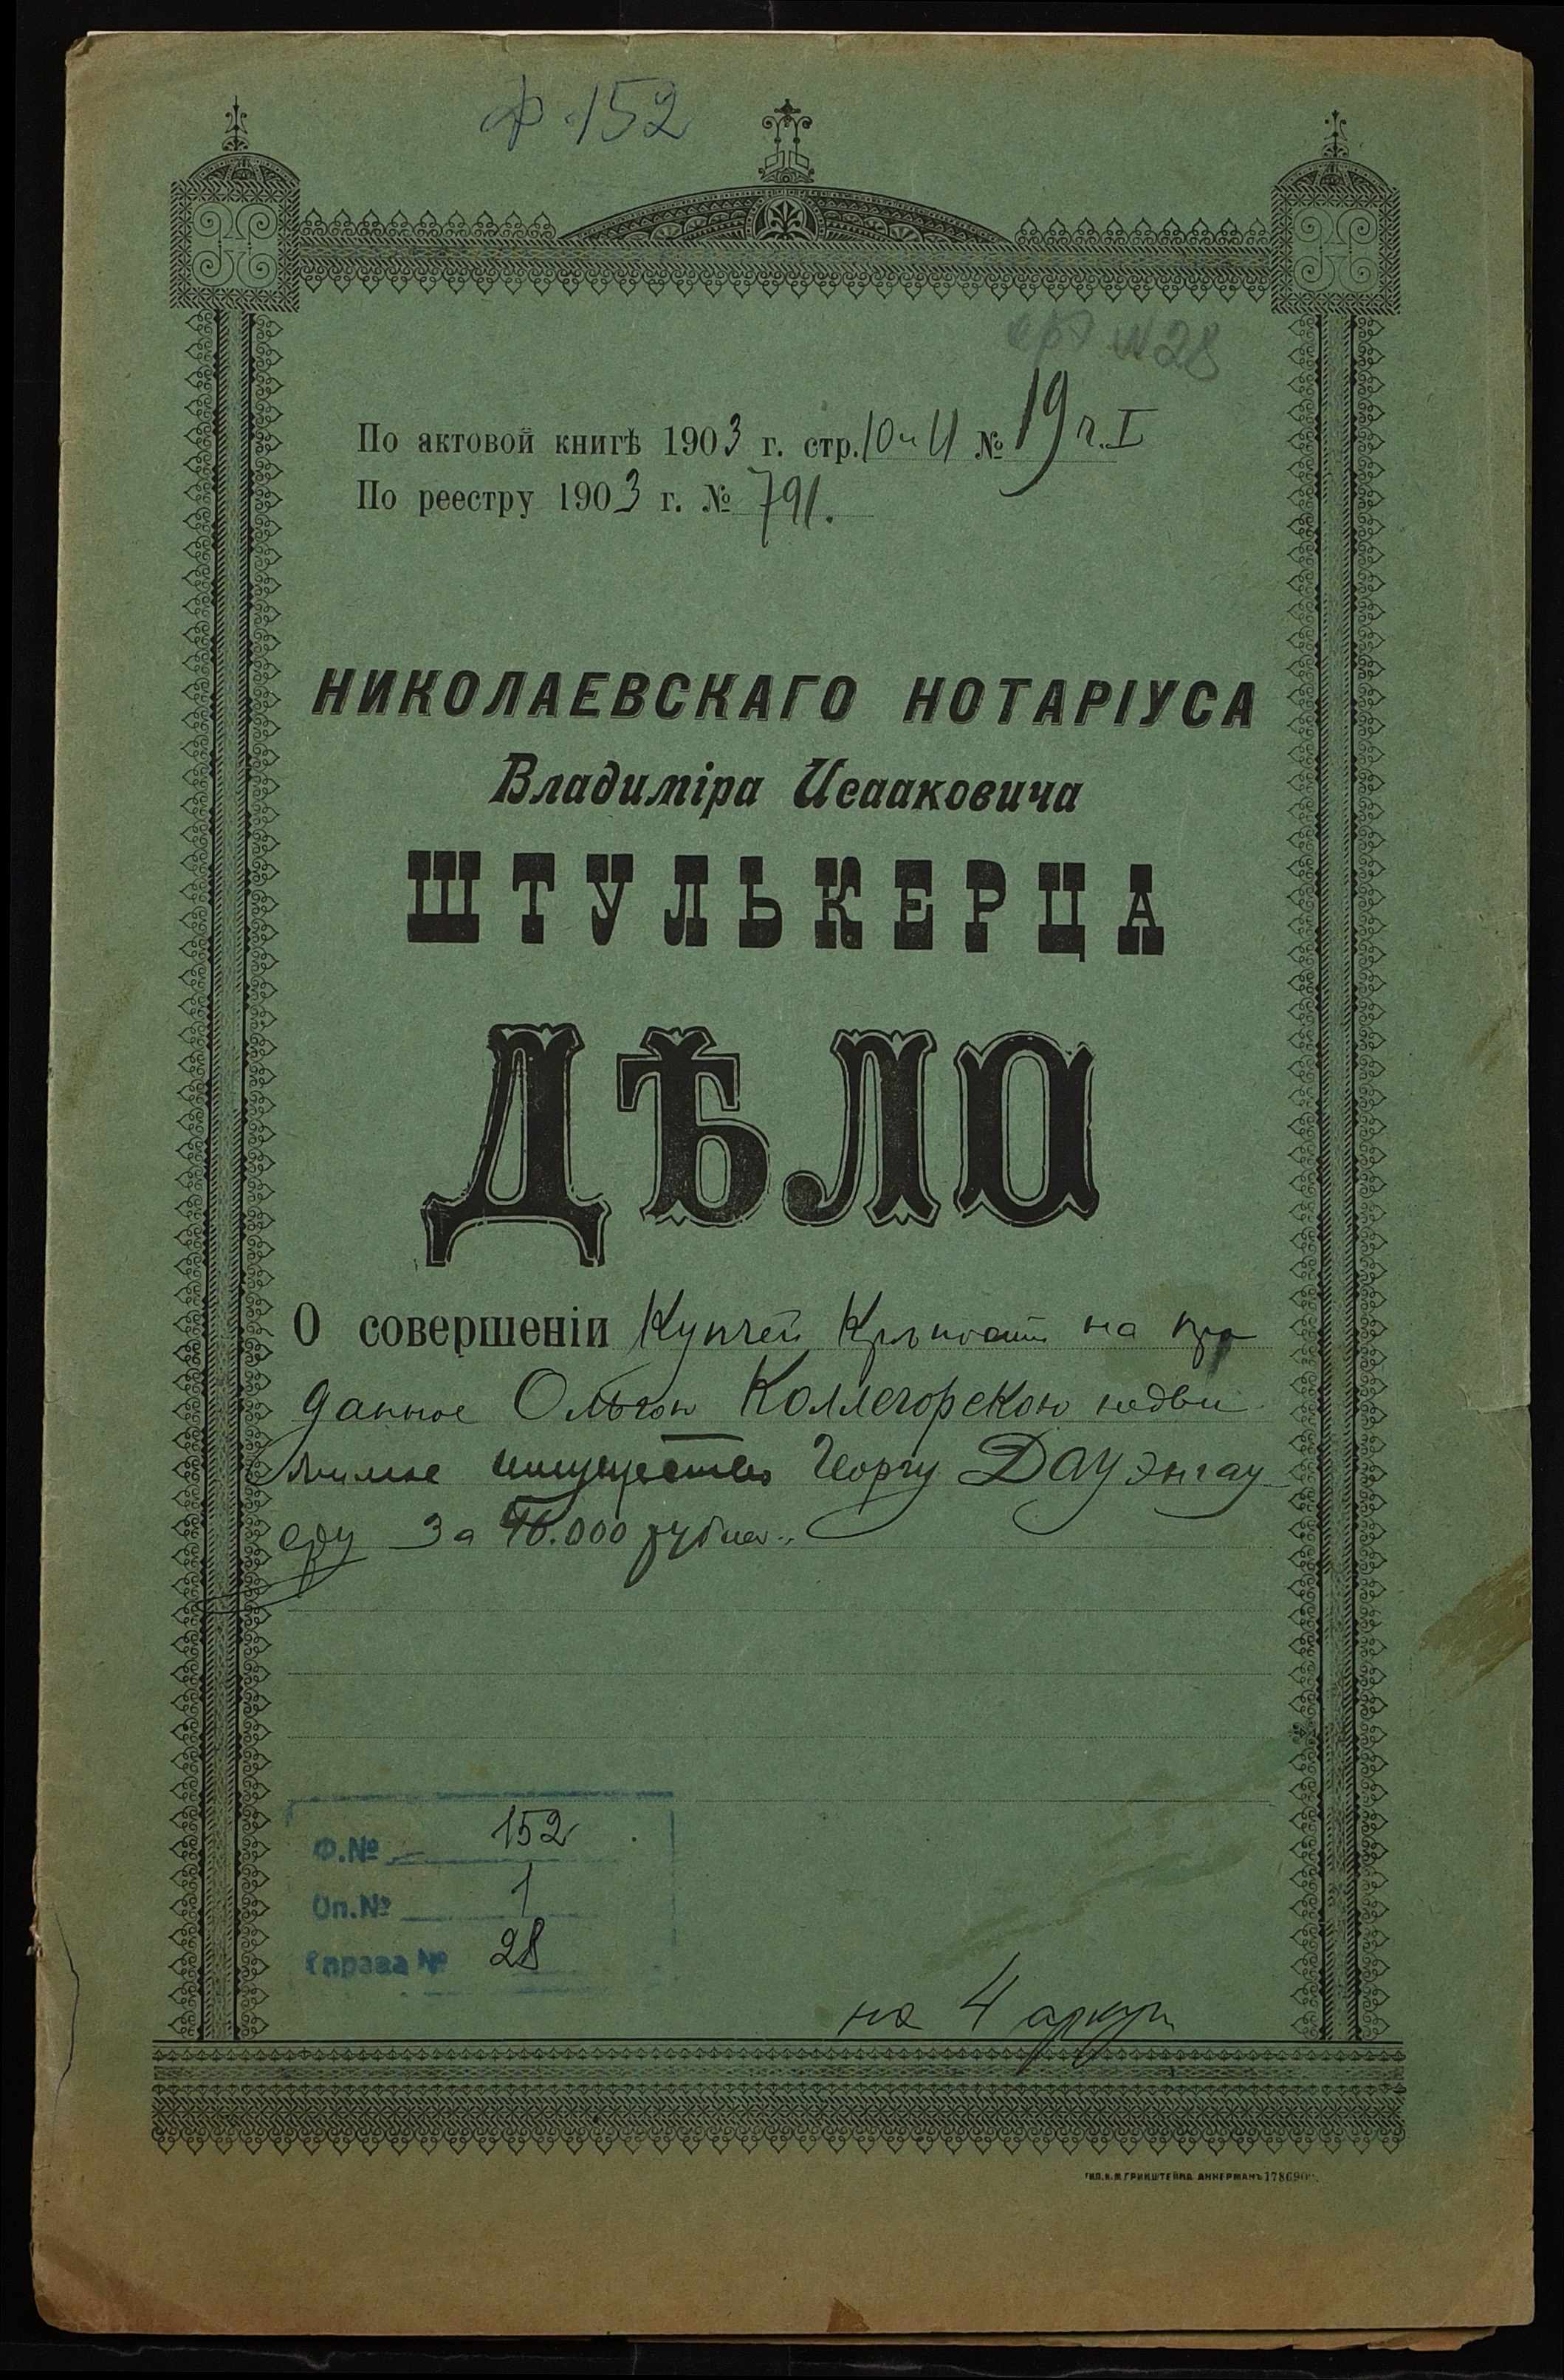 Ф. 152
арх N 28
По актовой книгѣ 1903 г. стр. 10 и 11 № 19 ч. I
По реестру 1903 г. № 791.
НИКОЛАЕВСКАГО НОТАРІУСА
Владиміра Исааковича
ШТУЛЬКЕРЦА
ДѢЛО
О совершеніи Купчей Крѣпости на про
данное Ольгою Коллегорскою недви
жимое имущество Георгу Дауэнгау
еру за 10.000 рублей.
Ф.№ 152
Оп.№ 1
Справа № 28
на 4 аркуш
ТИП. И. М. ГРИНШТЕЙНА АККЕРМАНЪ